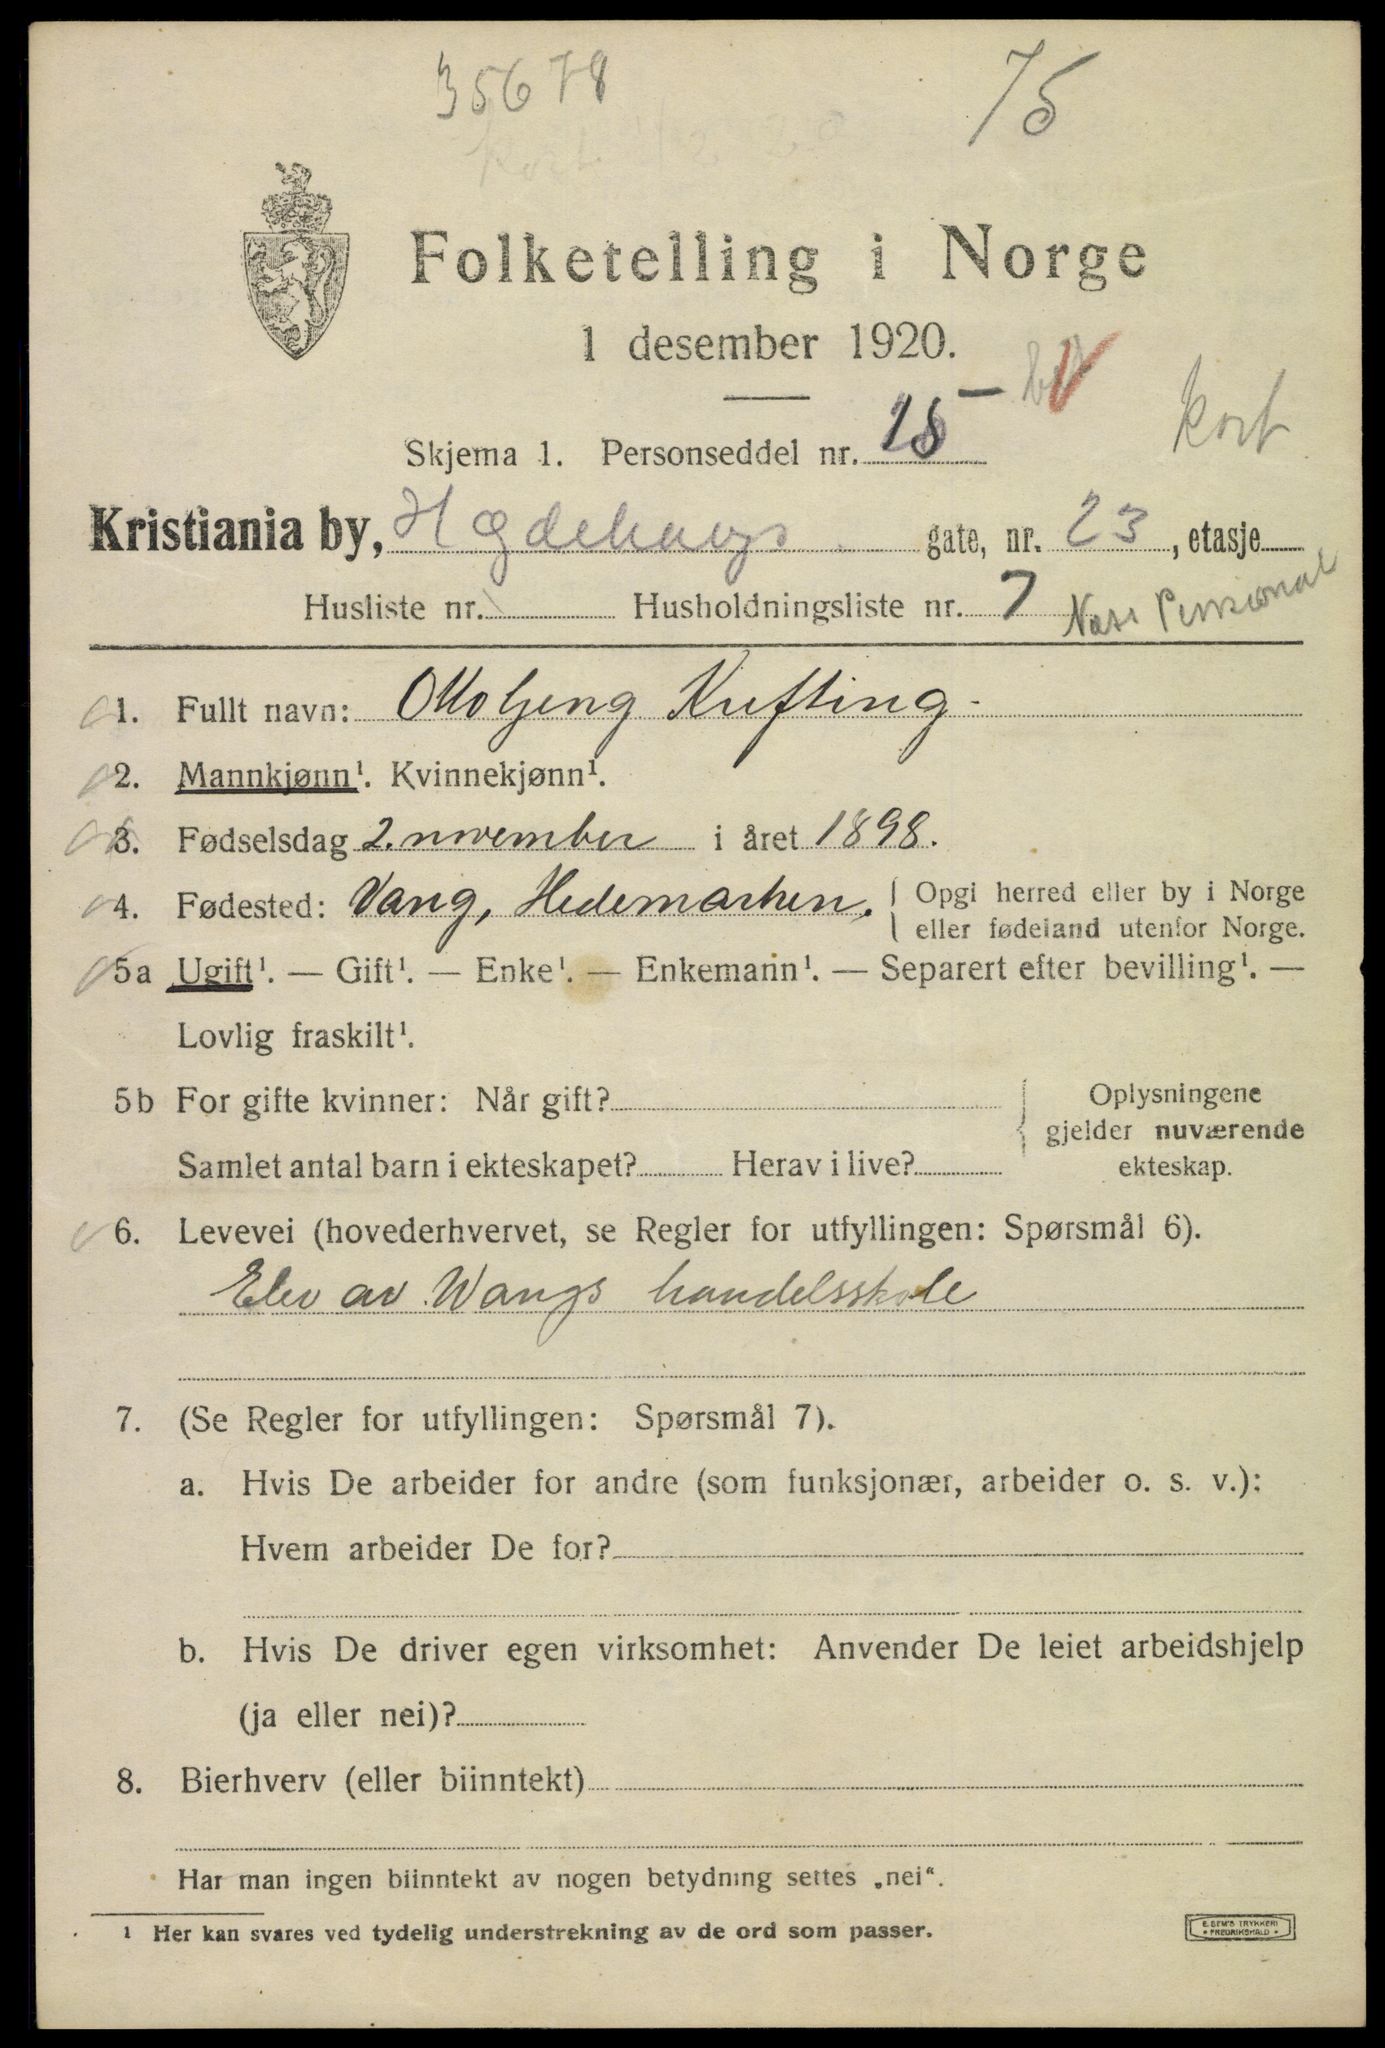 35678
75
Folketelling i Norge
1 desember 1920.
kort
Skjema 1. Personseddel nr. 15
Kristiania by, Hægdehaugs gate, nr. 23, etasje
Husliste nr. Husholdningsliste nr. 7
1. Fullt navn: Otto Jeng Krefting
2. Mannkjønn¹. Kvinnekjønn¹.
3. Fødselsdag 2. november i året 1898.
4. Fødested: Vang, Hedemarken. Opgi herred eller by i Norge
eller fødeland utenfor Norge.
5a Ugift¹. — Gift¹. — Enke¹. — Enkemann¹. — Separert efter bevilling¹. —
Lovlig fraskilt¹.
5b For gifte kvinner: Når gift?
Samlet antal barn i ekteskapet? Herav i live?
Oplysningene
gjelder nuværende
ekteskap.
6. Levevei (hovederhvervet, se Regler for utfyllingen: Spørsmål 6).
Elev av Wangs handelsskole
7. (Se Regler for utfyllingen: Spørsmål 7).
a. Hvis De arbeider for andre (som funksjonær, arbeider o. s. v.):
Hvem arbeider De for?
b. Hvis De driver egen virksomhet: Anvender De leiet arbeidshjelp
(ja eller nei)?
8. Bierhverv (eller biinntekt)
Har man ingen biinntekt av nogen betydning settes „nei“.
¹ Her kan svares ved tydelig understrekning av de ord som passer.
E. SEM'S TRYKKERI
• FREDRIKSHALD •